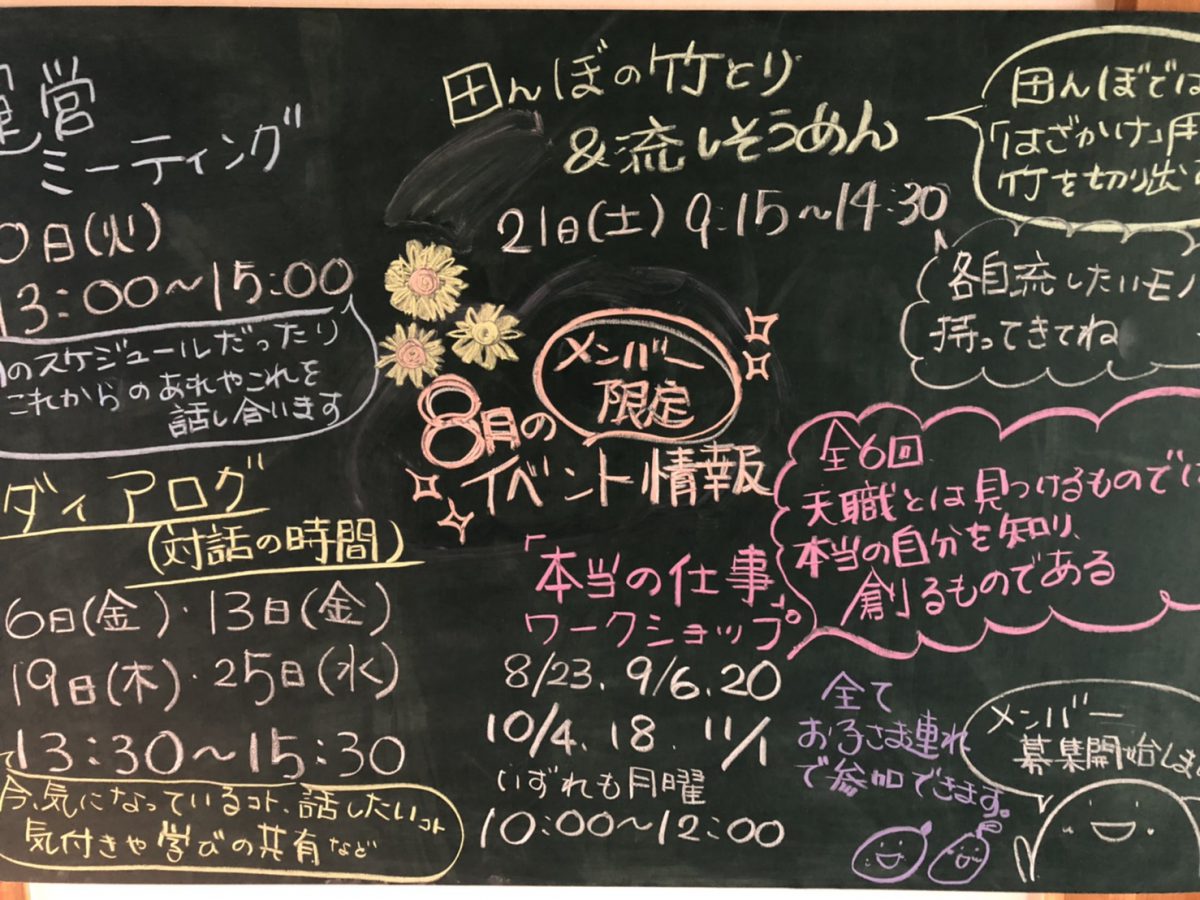 運営
ミーティング
0日(火)
13:00〜15:00
のスケジュールだったり
これからのあれやこれを
話し合います
ダイアログ
(対話の時間)
6日(金)・13日(金)
19日(木)・25日(水)
13:30〜15:30
今、気になっているコト、話したいコト
気付きや学びの共有など
田んぼの竹とり
&流しそうめん
21日(土) 9:15〜14:30
田んぼでは
「はざかけ」用
竹を切り出
各自流したいモノ
持ってきてね
メンバー
限定
8月の
イベント情報
「本当の仕事」
ワークショップ
8/23、9/6、20
10/4、18、11/1
いずれも月曜
10:00〜12:00
全6回
天職とは見つけるものでは
本当の自分を知り、
創るものである
全て
お子さま連れ
で参加できます。
メンバー
募集開始しま